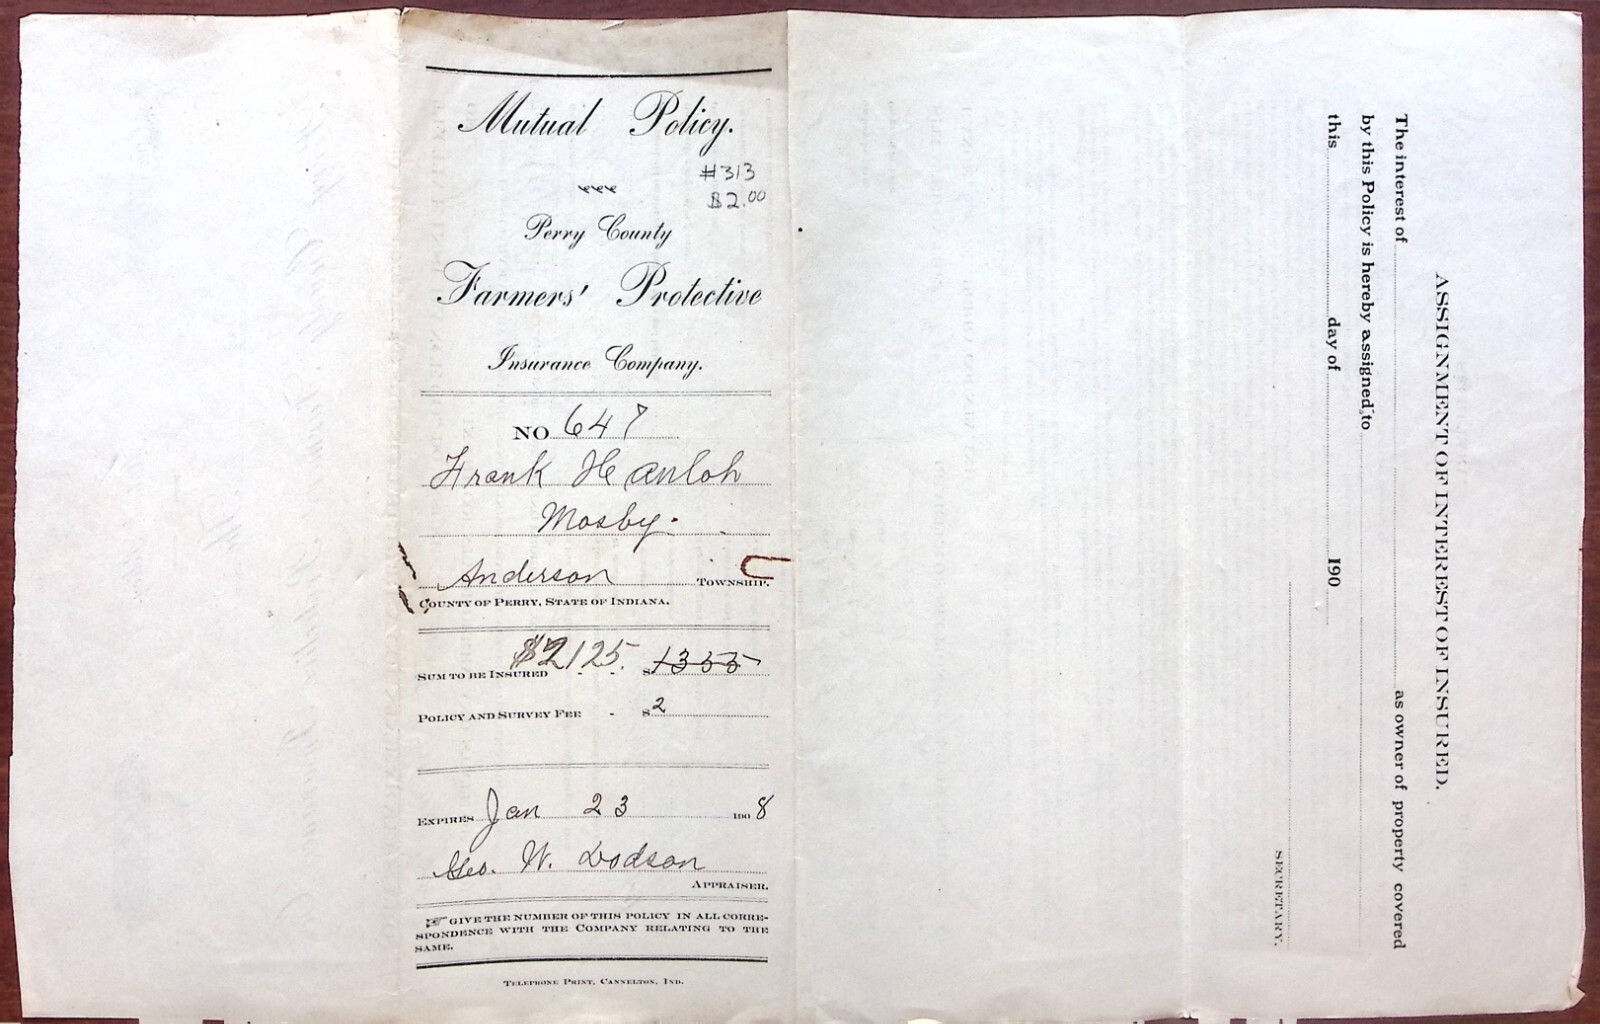 Mutual Policy.
#313
$2.00
Perry County
Farmers' Protective
Insurance Company.
NO 647
Frank Heanloh
Mosby.
Anderson TOWNSHIP.
COUNTY OF PERRY, STATE OF INDIANA.
$2125.
SUM TO BE INSURED - - $1355
POLICY AND SURVEY FEE - $2
EXPIRES Jan 23 1908
Geo. W. Dodson
APPRAISER.
☞ GIVE THE NUMBER OF THIS POLICY IN ALL CORRE-
SPONDENCE WITH THE COMPANY RELATING TO THE
SAME.
TELEPHONE PRINT, CANNELTON, IND.
ASSIGNMENT OF INTEREST OF INSURED.
The interest of as owner of property covered
by this Policy is hereby assigned to
this day of 190
SECRETARY.